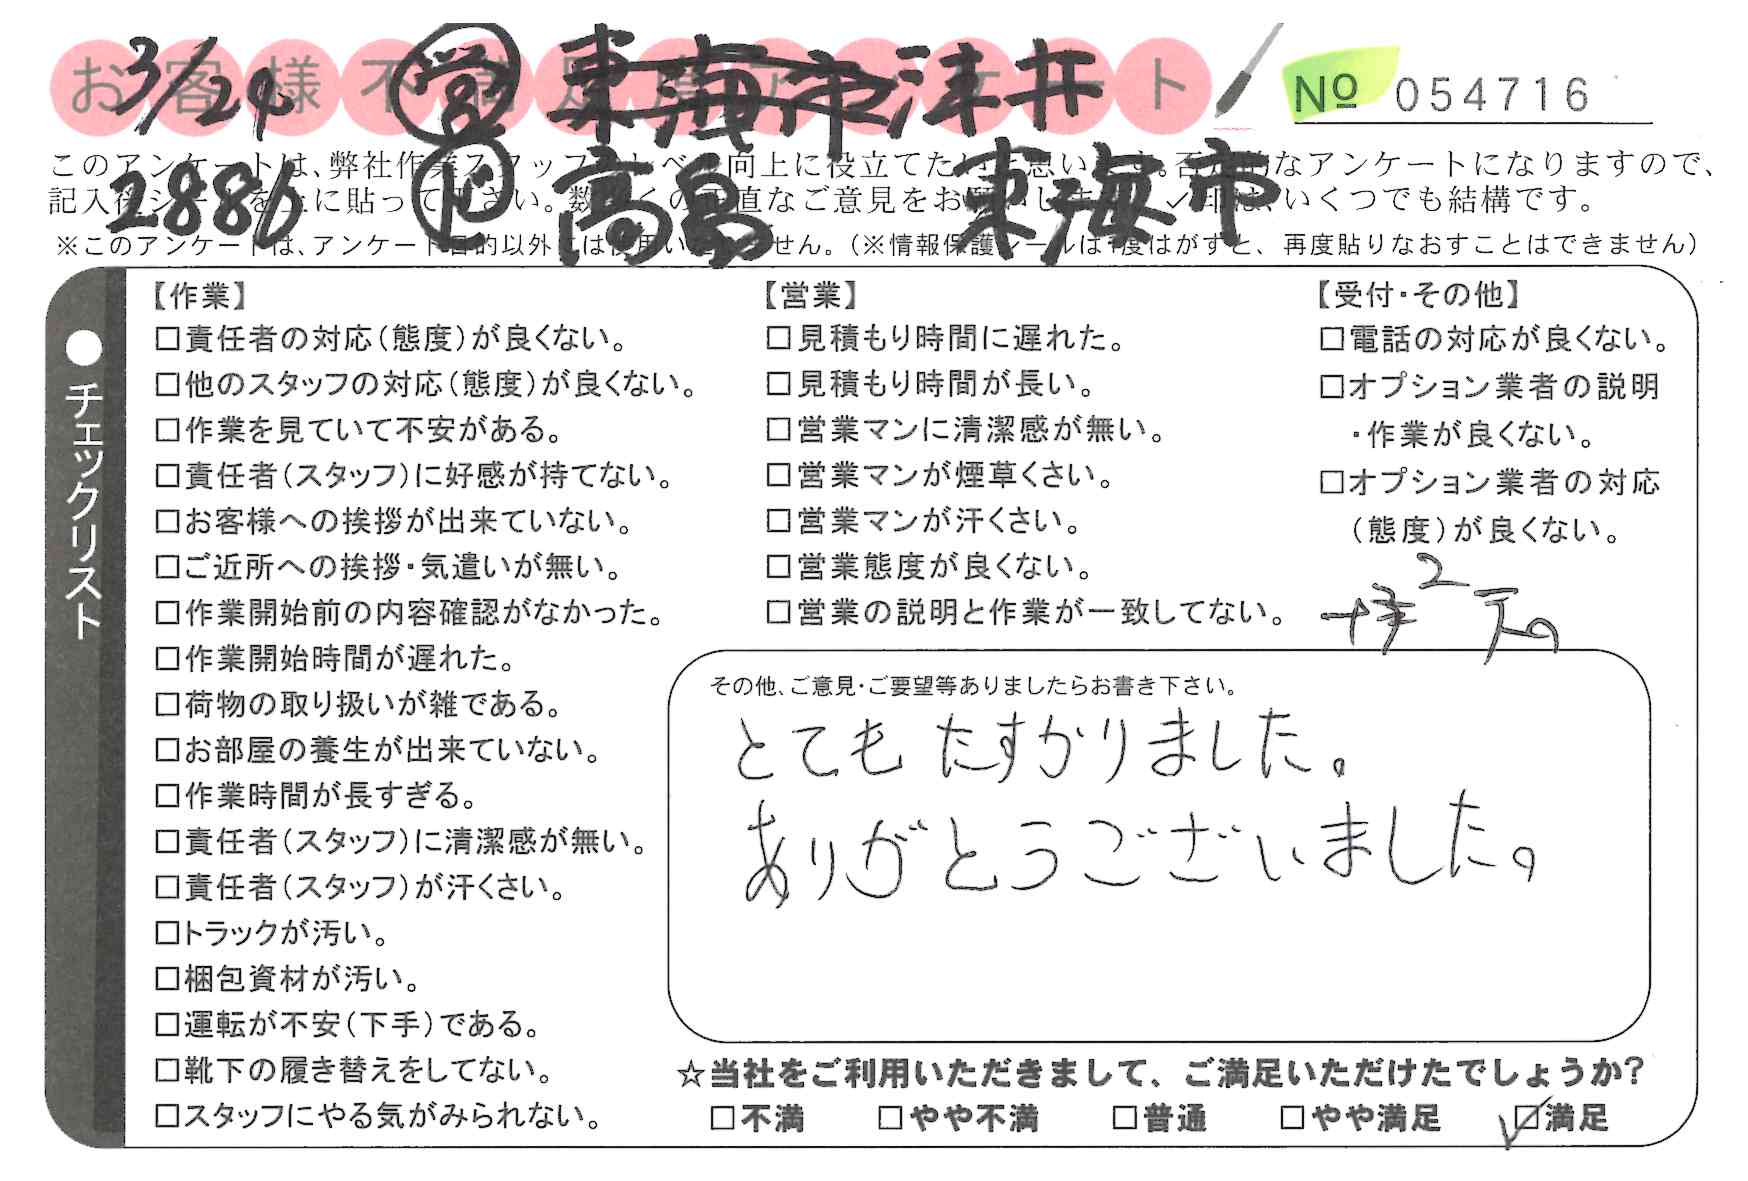 お客様不満足度アンケート
3/24 営 東海市 津井
No 054716
2886 ド 高島 東海市
このアンケートは、弊社作業スタッフのレベル向上に役立てたいと思います。否定的なアンケートになりますので、
記入後シールを上に貼って下さい。数多くの正直なご意見をお願いします。✓印は、いくつでも結構です。
※このアンケートは、アンケート目的以外には使用いたしません。(※情報保護シールは1度はがすと、再度貼りなおすことはできません)
●チェックリスト
【作業】
□責任者の対応(態度)が良くない。
□他のスタッフの対応(態度)が良くない。
□作業を見ていて不安がある。
□責任者(スタッフ)に好感が持てない。
□お客様への挨拶が出来ていない。
□ご近所への挨拶・気遣いが無い。
□作業開始前の内容確認がなかった。
□作業開始時間が遅れた。
□荷物の取り扱いが雑である。
□お部屋の養生が出来ていない。
□作業時間が長すぎる。
□責任者(スタッフ)に清潔感が無い。
□責任者(スタッフ)が汗くさい。
□トラックが汚い。
□梱包資材が汚い。
□運転が不安(下手)である。
□靴下の履き替えをしてない。
□スタッフにやる気がみられない。
【営業】
□見積もり時間に遅れた。
□見積もり時間が長い。
□営業マンに清潔感が無い。
□営業マンが煙草くさい。
□営業マンが汗くさい。
□営業態度が良くない。
□営業の説明と作業が一致してない。
【受付・その他】
□電話の対応が良くない。
□オプション業者の説明
・作業が良くない。
□オプション業者の対応
(態度)が良くない。
その他、ご意見・ご要望等ありましたらお書き下さい。
とても たすかりました。
ありがとうございました。
☆当社をご利用いただきまして、ご満足いただけたでしょうか?
□不満 □やや不満 □普通 □やや満足 ☑満足